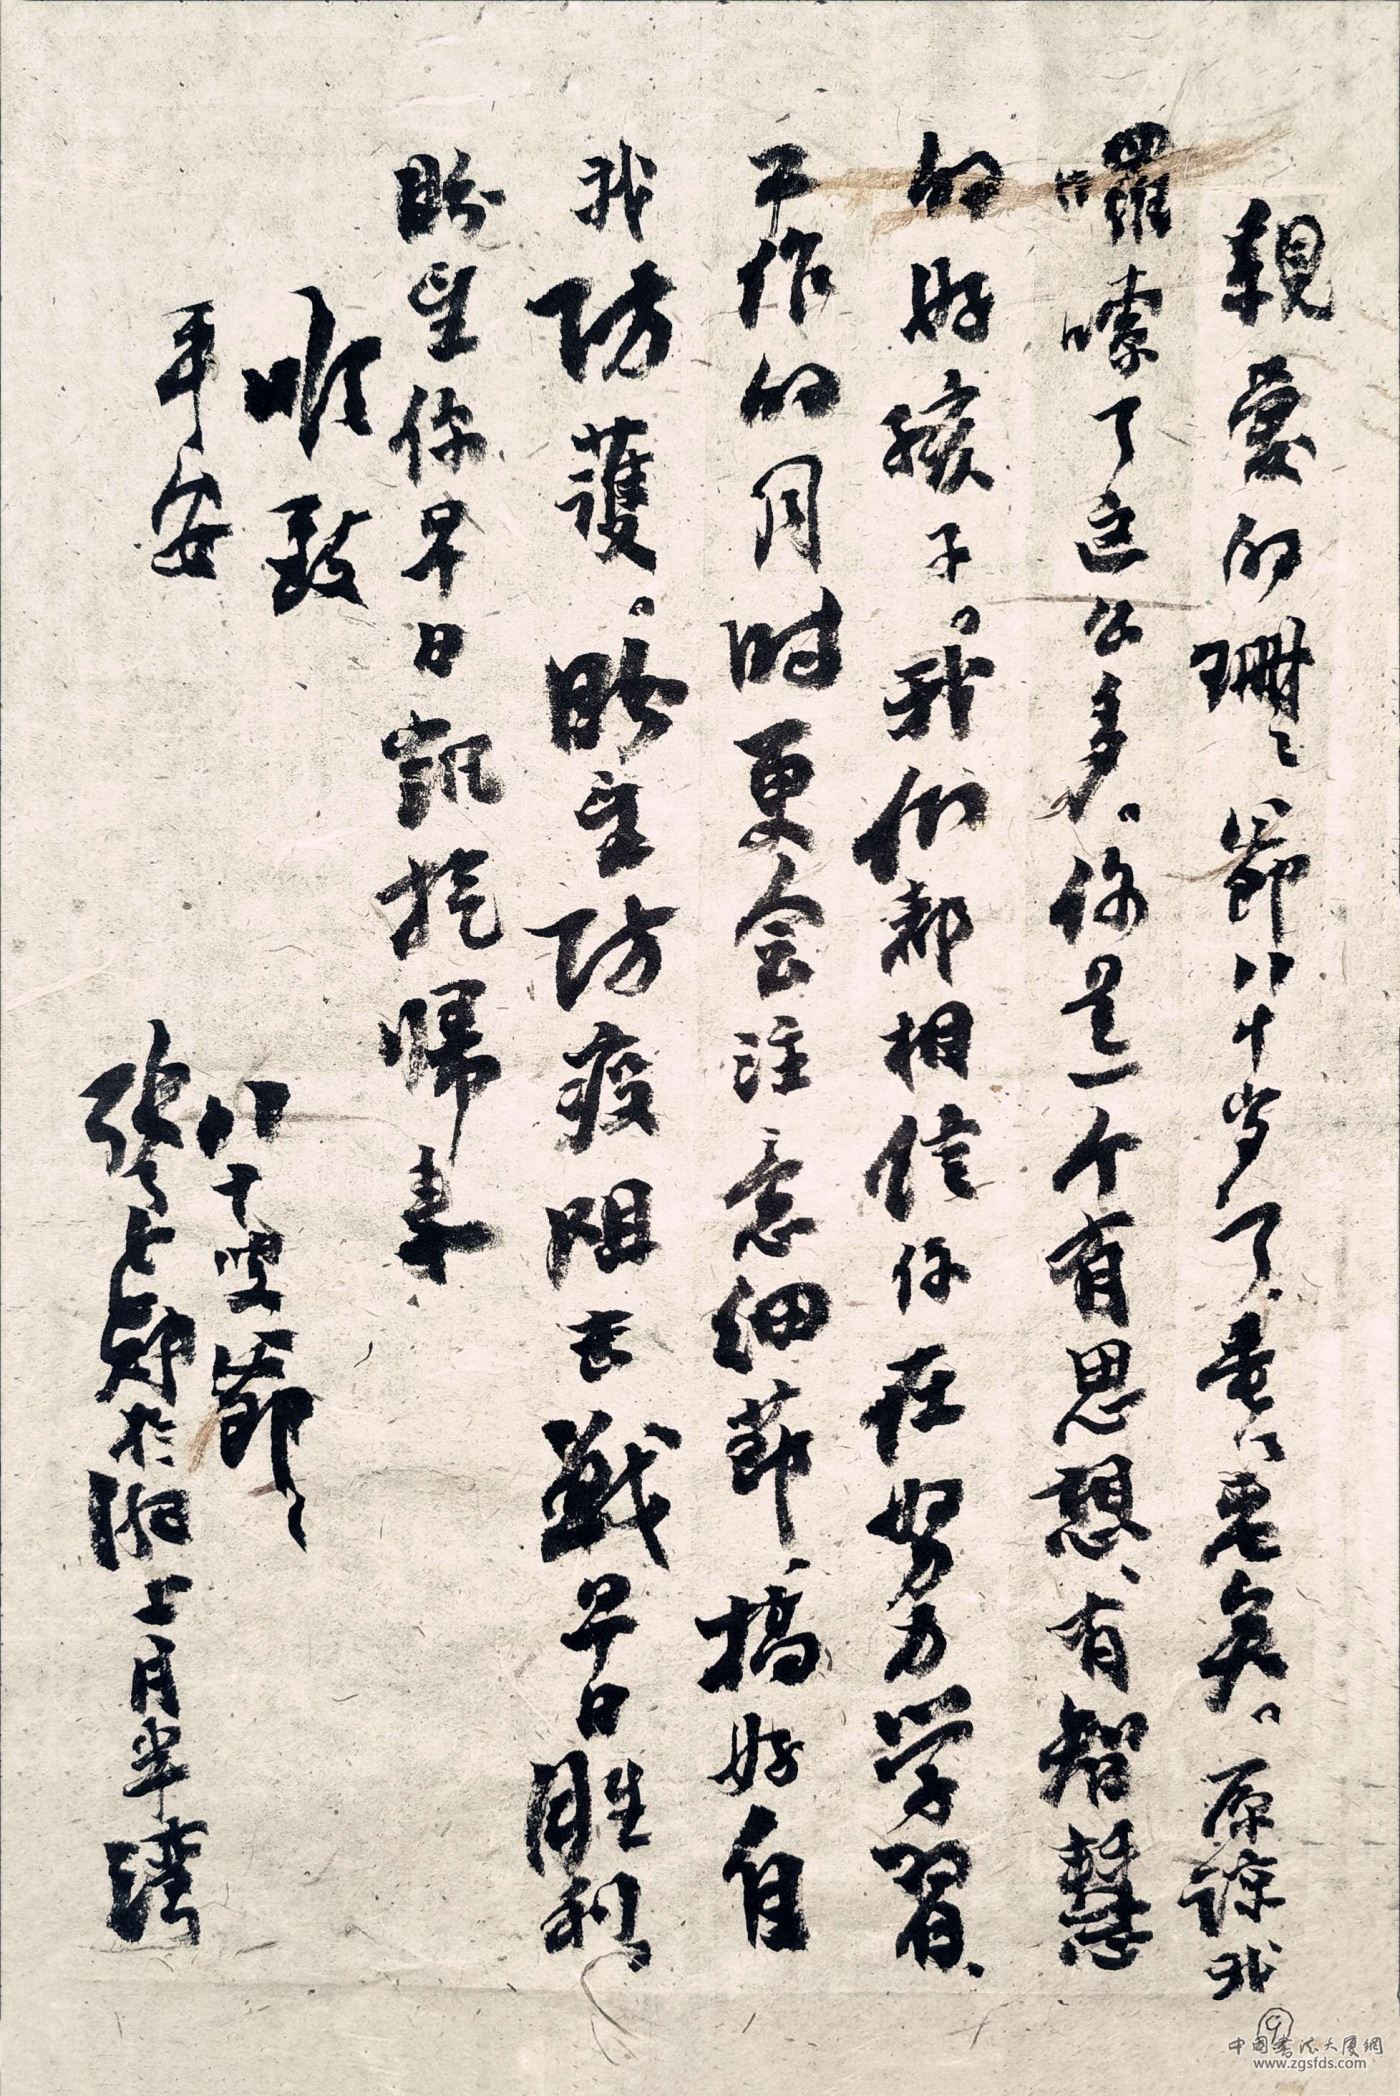 親愛的珊珊 爺八十岁了，垂垂老矣。原諒我
囉嗦了这么多。你是一个有思想、有智慧
的好孩子。我们都相信你在努力学習、
工作的同时更会注意细節、搞好自
我防護。盼望防疫阻击戰早日胜利，
盼望你早日凱旋歸来
顺致
平安
八十叟 爺爺
张七郎於湘江月半湾
9
中国书法大厦網
www.zgsfds.com